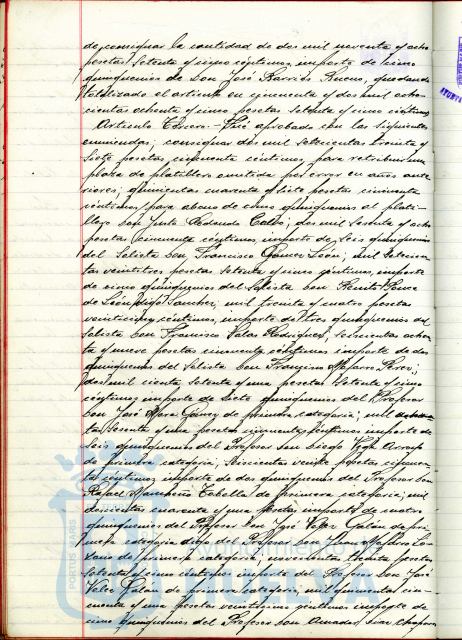 de, consignar la cantidad de dos mil noventa y ocho
pesetas setenta y cinco céntimos, importe de cinco
quinquenios de Don José Garrido Bueno, quedando
totalizado el artículo en cincuenta y dos mil ocho-
cientas ochenta y cinco pesetas setenta y cinco céntimos.
Artículo tercero.- Fué aprobado con las siguientes
enmiendas; consignar dos mil setecientas treinta y
siete pesetas, cincuenta céntimos, para retribuir una
plaza de platillero omitida por error en años ante-
riores; quinientas cuarenta y siete pesetas cincuenta
céntimos para abono de cinco quinquenios al plati-
llero Don Justo Redondo Calvo; dos mil sesenta y ocho
pesetas cincuenta céntimos importe de seis quinquenios
del Solista Don Francisco Gómez León; mil setecien-
tas veintitres pesetas setenta y cinco céntimos, importe
de cinco quinquenios del Solista Don Ponce
de León Sánchez; mil treinta y cuatro pesetas
veinticinco céntimos, importe de tres quinquenios del
Solista Don Francisco Salas Rodríguez; seiscientas ochen-
ta y nueve pesetas cincuenta céntimos importe de dos
quinquenios del Solista Don Francisco Navarro Pérez;
dos mil ciento setenta y una pesetas setenta y cinco
céntimos importe de siete quinquenios del Profesor
Don José Mora Gómez de primera categoría; mil ochocien-
tas sesenta y una pesetas cincuenta céntimos importe de
seis quinquenios del Profesor Don Diego Vega
de primera categoría; seiscientas veinte pesetas cincuen-
ta céntimos importe de dos quinquenios del Profesor Don
Rafael de primera categoría; mil
doscientas cuarenta y una pesetas importe de cuatro
quinquenios del Profesor Don José Vélez Galán de pri-
mera categoría digo del Profesor Don Juan Navarro Lo-
zano de primera categoría; treinta pesetas
setenta y cinco céntimos importe del Profesor Don José
Vélez Galán de primera categoría; mil quinientas cin-
cuenta y una pesetas veinticinco céntimos importe de
cinco quinquenios del Profesor Don Amador
PORTUS MARIS
Ayuntamiento de
HUELVA